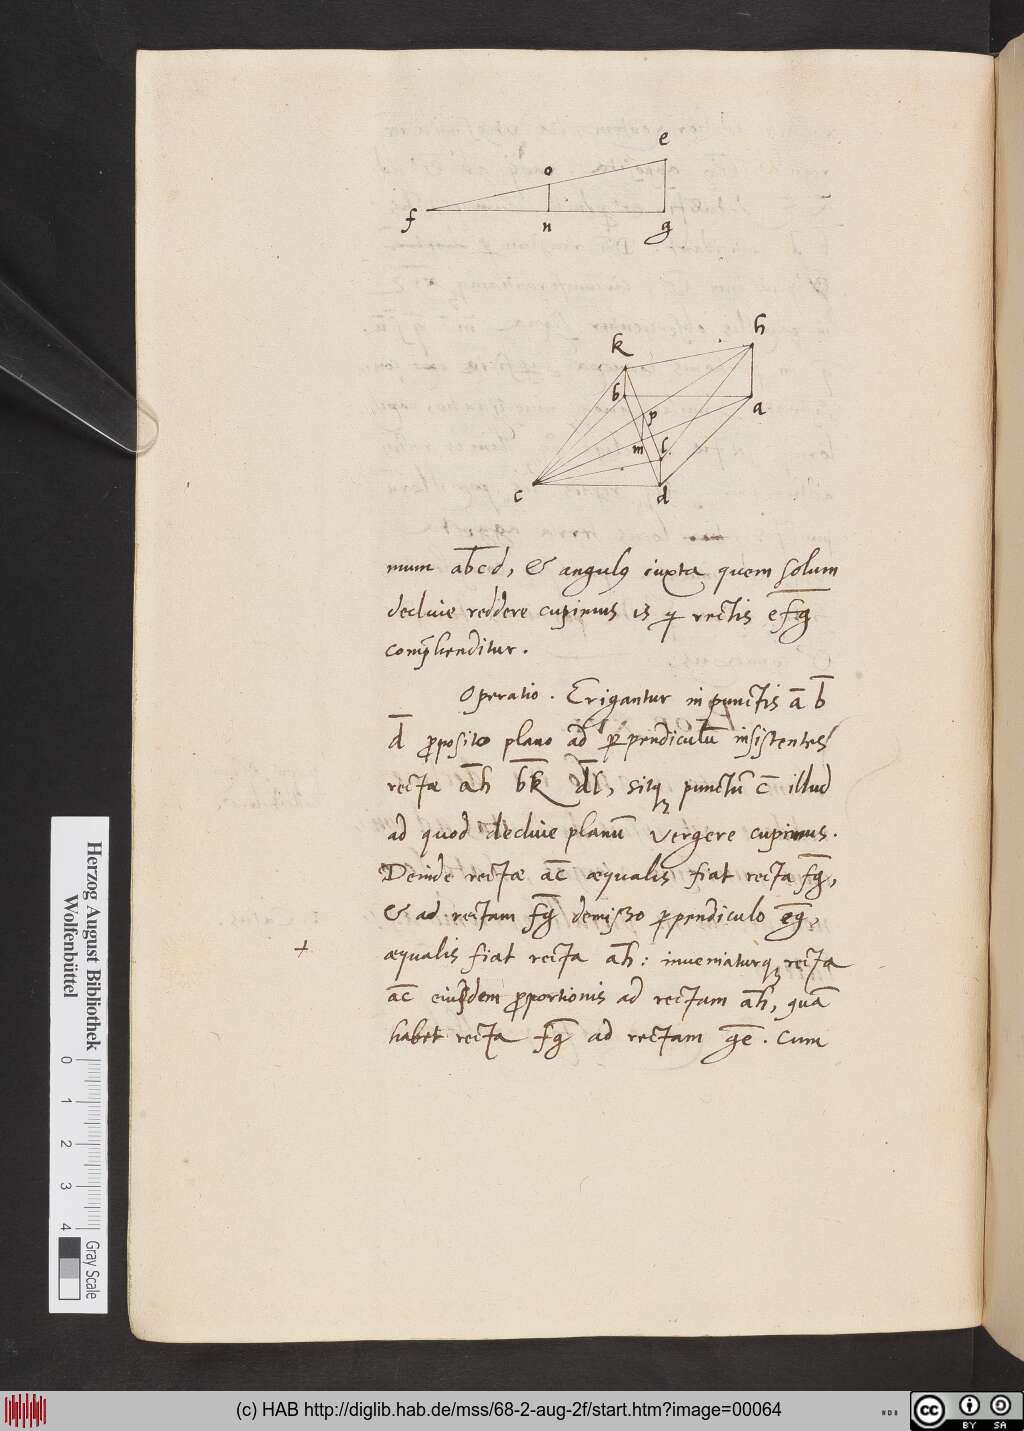 e
o
f n g
h
k
b a
p
m l
c d
mum abcd, & angulꝰ iuxta quem solum
declive reddere cupimus is ꝗ rectis efg
comp̄henditur.
Operatio. Erigantur in punctis a b
d ꝓposito plano ad ꝑpendiculū insistentes
rectæ ah bk dl, sitqꝫ punctū c illud
ad quod declive planū vergere cupimus.
Deinde rectæ ac æqualis fiat recta fg,
& ad rectam fg demisso ꝑpendiculo eg,
+ æqualis fiat recta ah: inveniaturqꝫ recta
ac eiusdem ꝓportionis ad rectam ah, quā
habet recta fg ad rectam ge. Cum
Herzog August Bibliothek
Wolfenbüttel
0 1 2 3 4
Gray Scale
(c) HAB http://diglib.hab.de/mss/68-2-aug-2f/start.htm?image=00064
cc BY SA